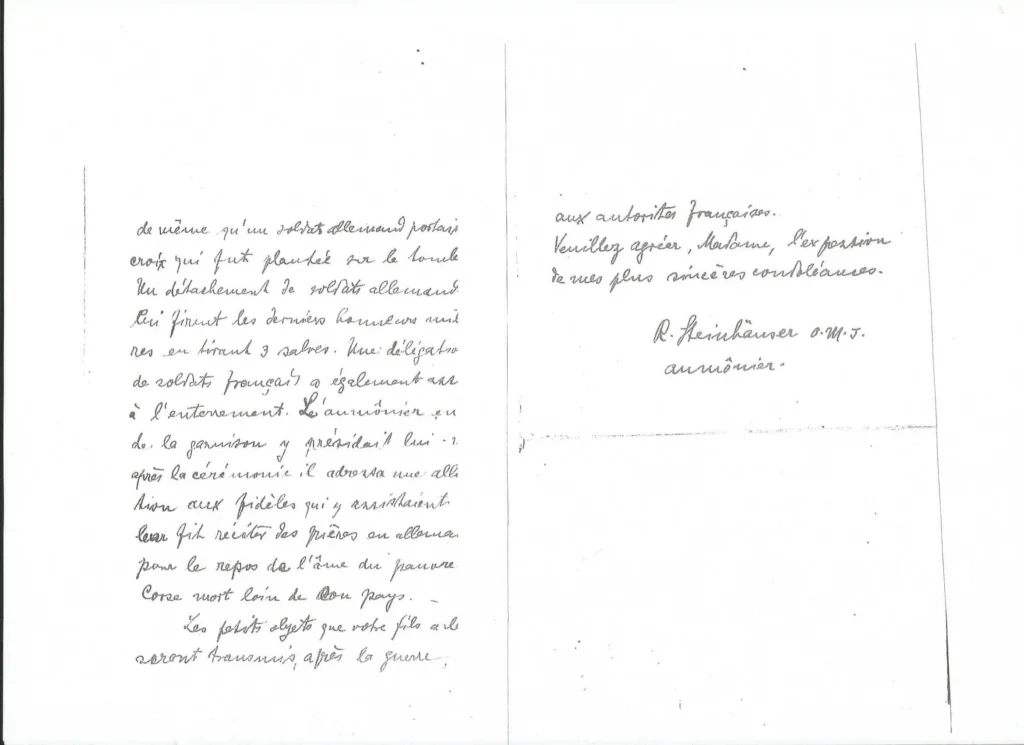 de même qu'un soldat allemand portait
croix qui fut plantée sur la tombe
Un détachement de soldats allemand
lui firent les derniers honneurs mil
res en tirant 3 salves. Une délégatio
de soldats français a également ass
à l'enterrement. L'aumônier en
de la garnison y présidait lui-
après la cérémonie il adressa une allo
tion aux fidèles qui y assistaient
leur fit réciter des prières en alleman
pour le repos de l'âme du pauvre
Corse mort loin de son pays. _
Les petits objets que votre fils a le
seront transmis, après la guerre,
aux autorités françaises.
Veuillez agréer, Madame, l'expression
de mes plus sincères condoléances.
R. Steinhäuser O.M.J.
aumônier.